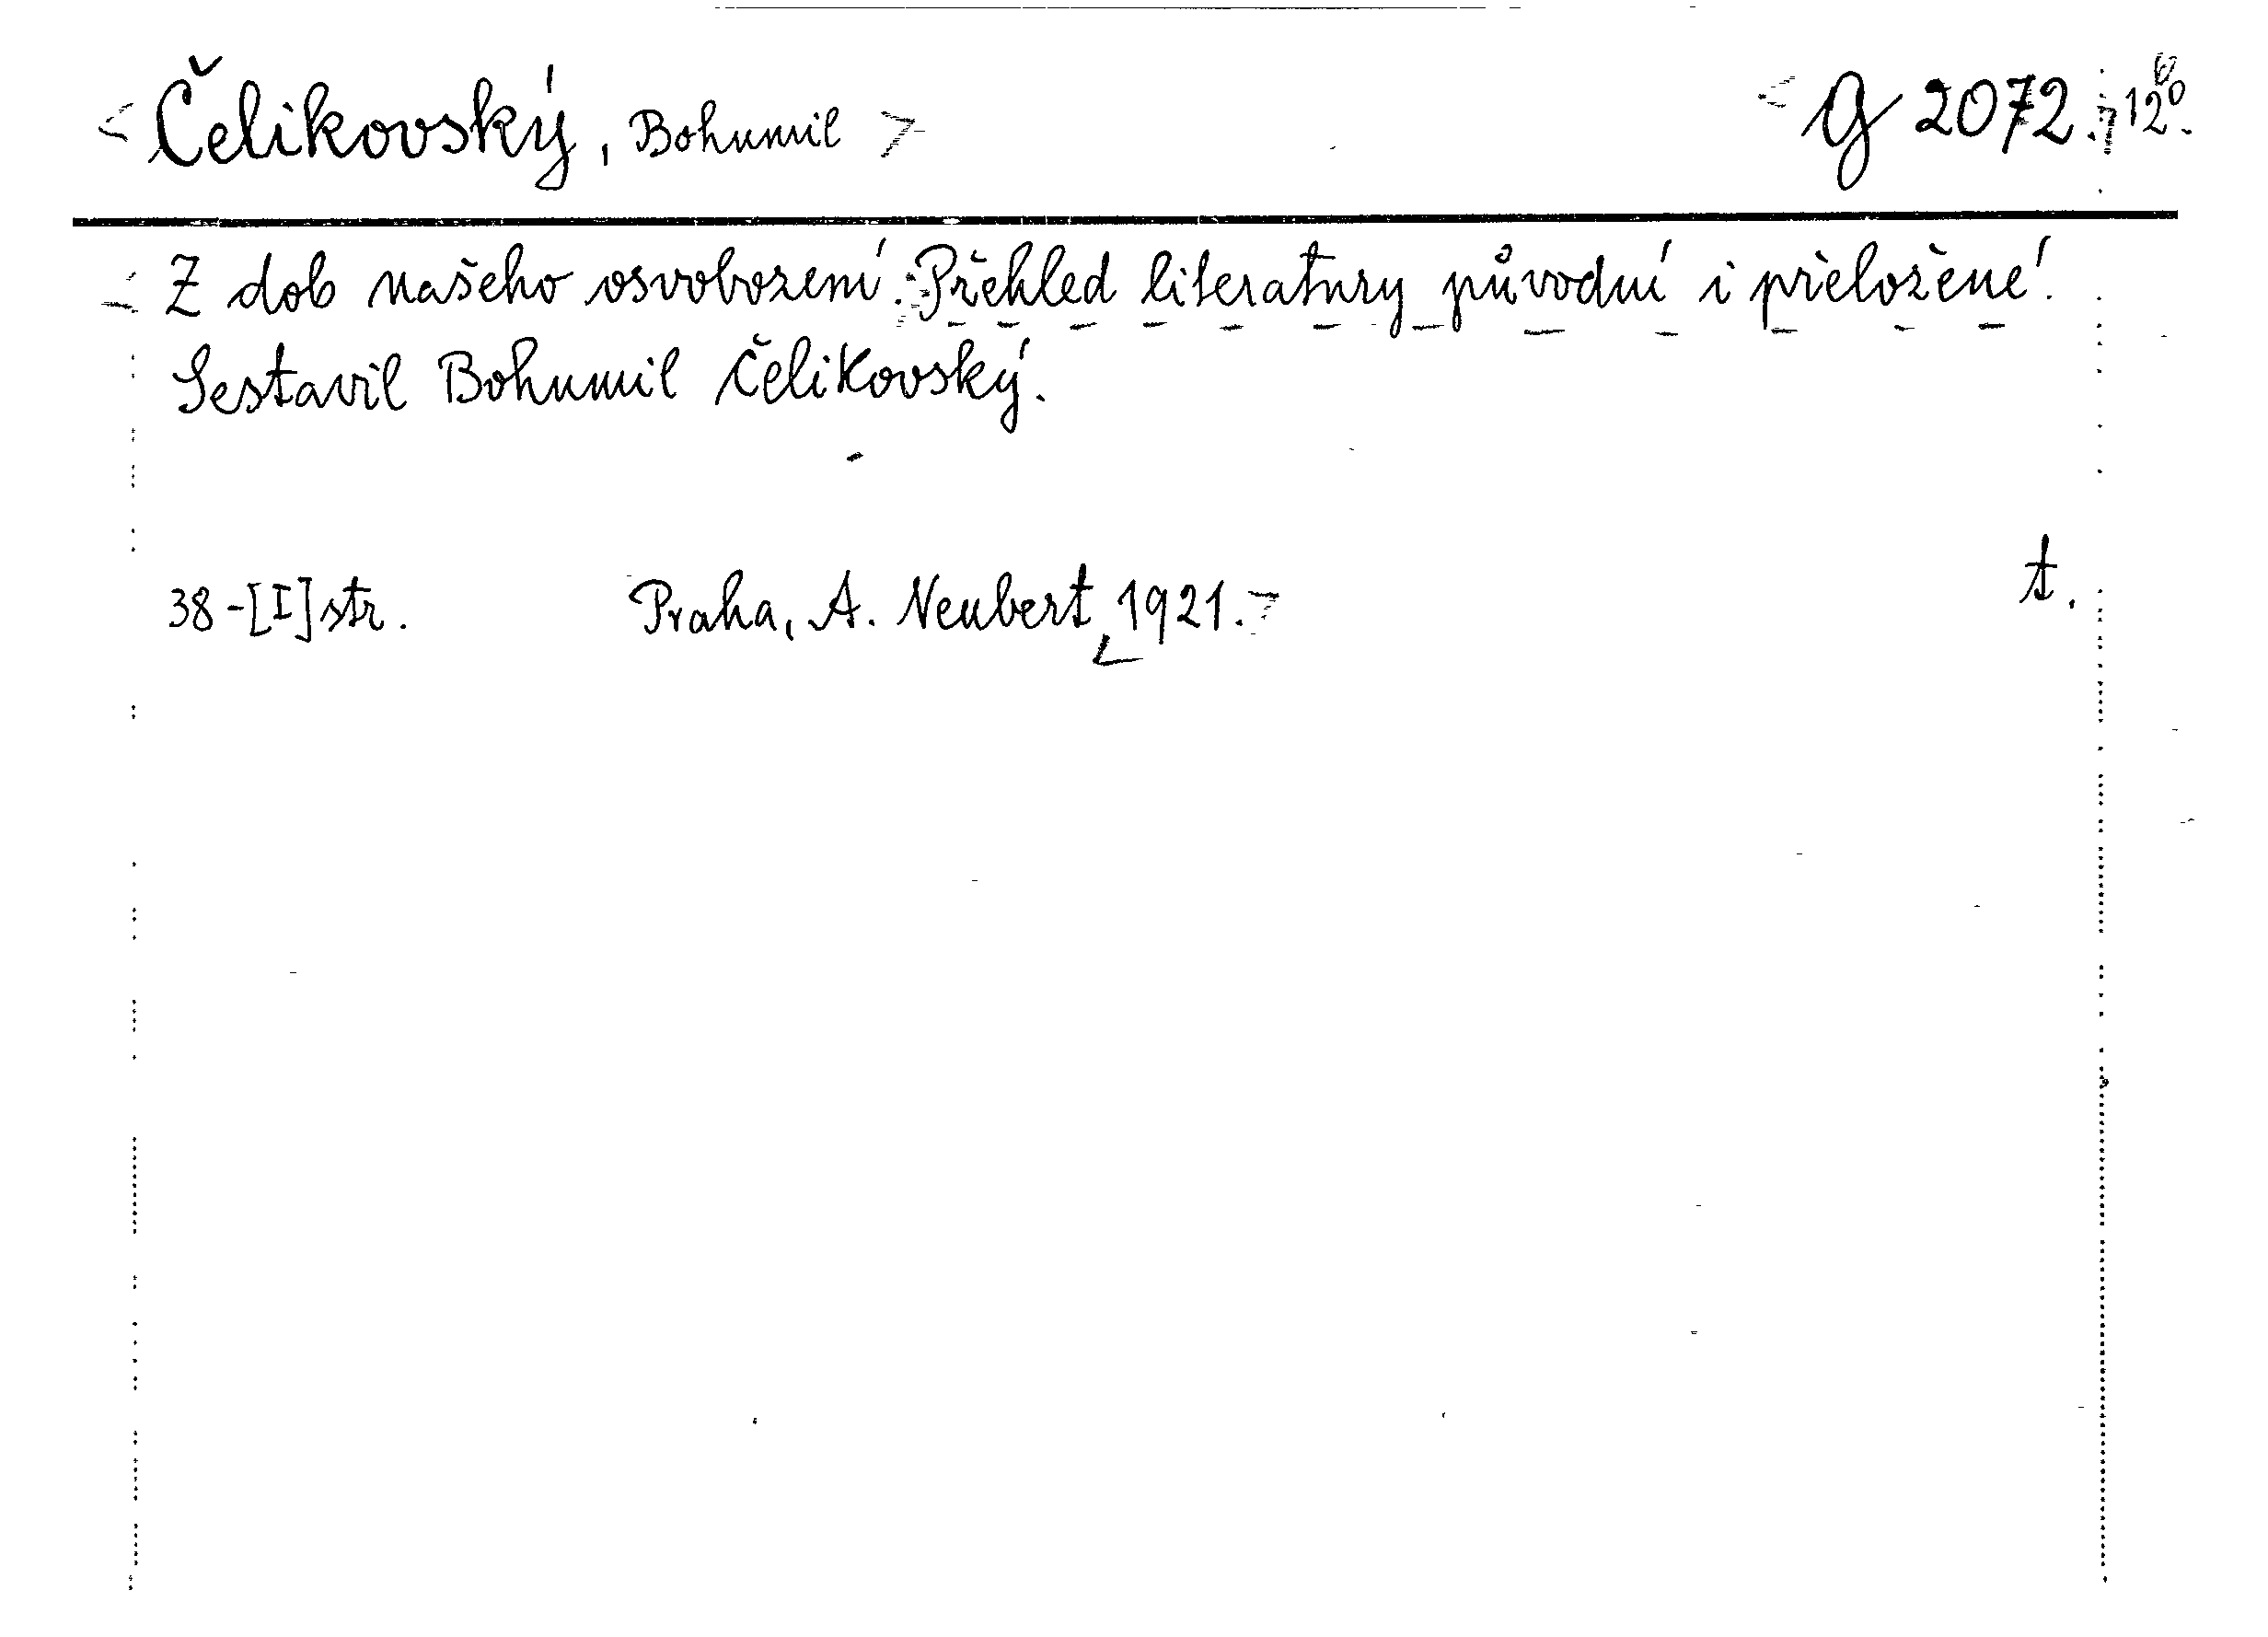 Čelikovský, Bohumil g 2072. 12°.
Z dob našeho osvobození. Přehled literatury původní i přeložené.
Sestavil Bohumil Čelikovský.
38-[I] str. Praha, A. Neubert, 1921. t.